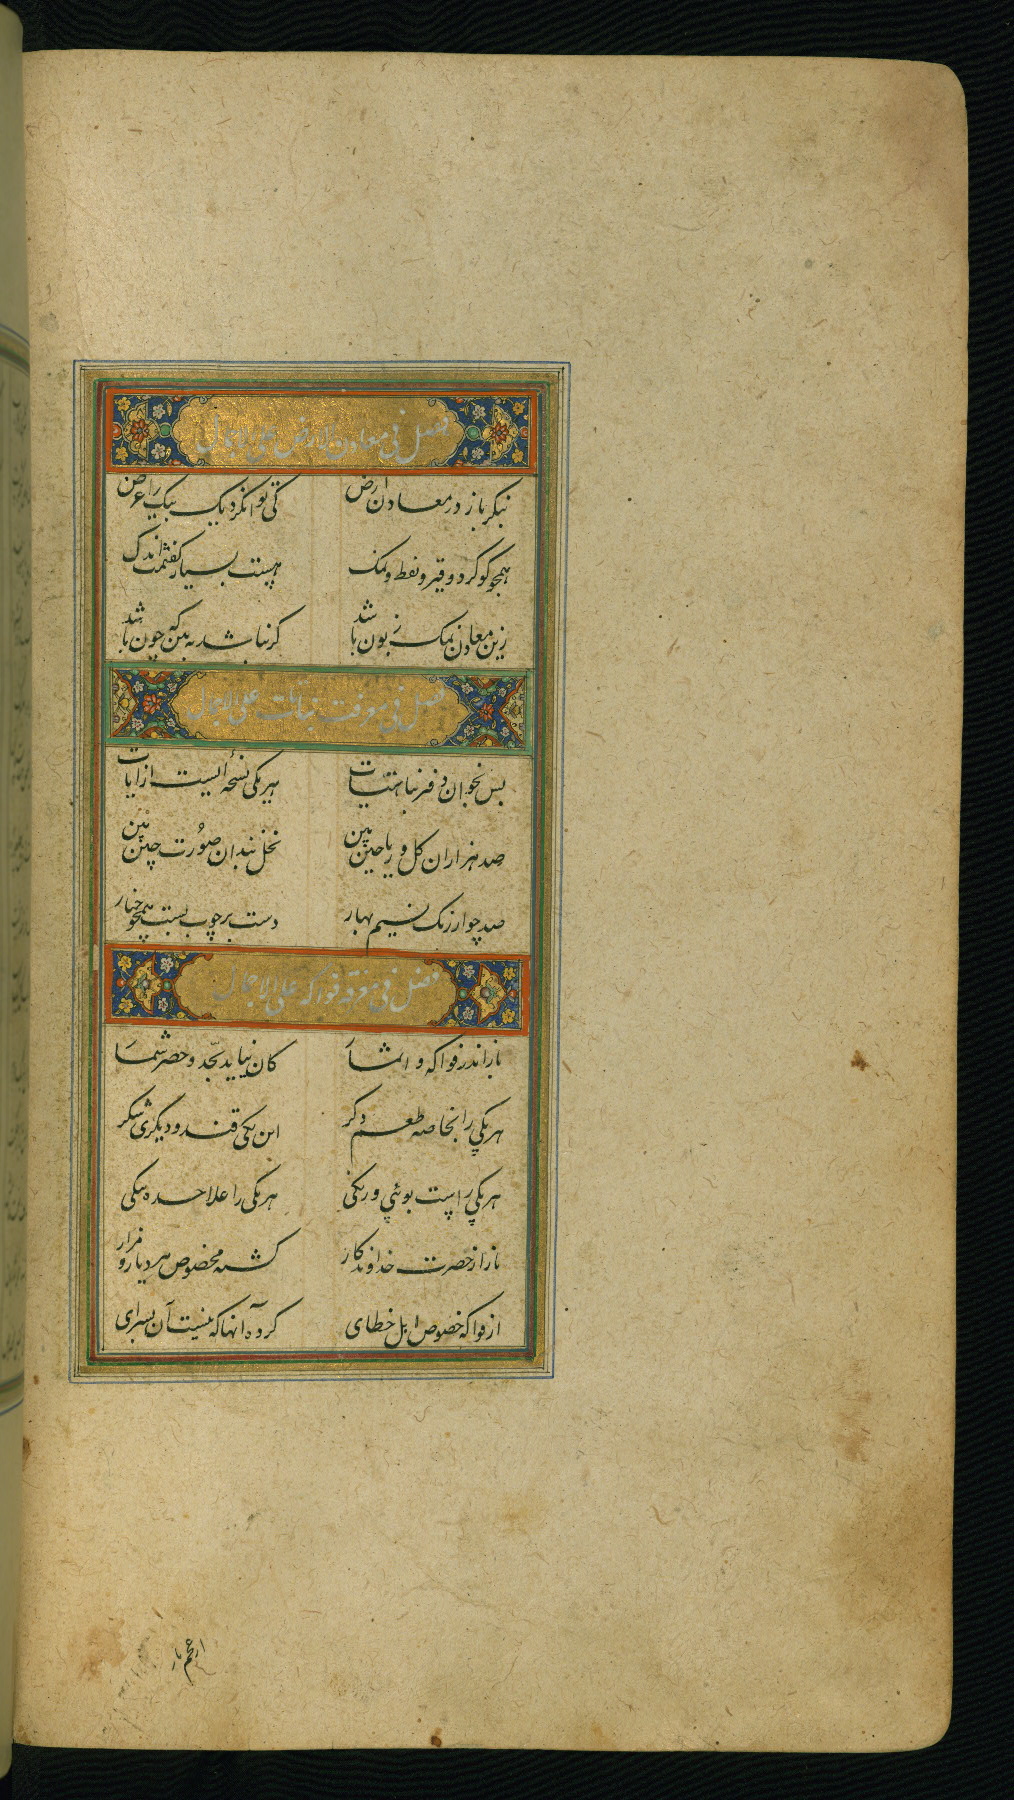 فصل فی معادن الارض علی الاجمال
بنگر باز در معادن ارض کی توانکرد یک بیک را عرض
همچو کوکرد و قیر و نفط و نمک هست بسیار گفتمت اندک
زین معادن نمک زبون باشد کر نباشد به بین که چون باشد
فصل فی معرفت نباتات علی الاجمال
پس بخوان دفتر نباتیات هر یکی نسخه ایست از ایات
صد هزاران کل و ریاحین بین نخل بندان صورت چین بین
صد چو ارزنک نسیم بهار دست بر چوب بست همچو خیار
فصل فی معرفة فواکه علی الاجمال
باز اندر فواکه و اثمار کان نیاید بحد و حصر شمار
هر یکی را بخاصه طعم دکر این یکی قند و دیگری شکر
هر یکی راست بوئی و رنکی هر یکی را علاحده
باز از حضرت خداوندکار کشته مخصوص هر دیار و مزار
از فواکه خصوص اهل خطای کرد آنها که نیست آن بسرای
از عجم باز